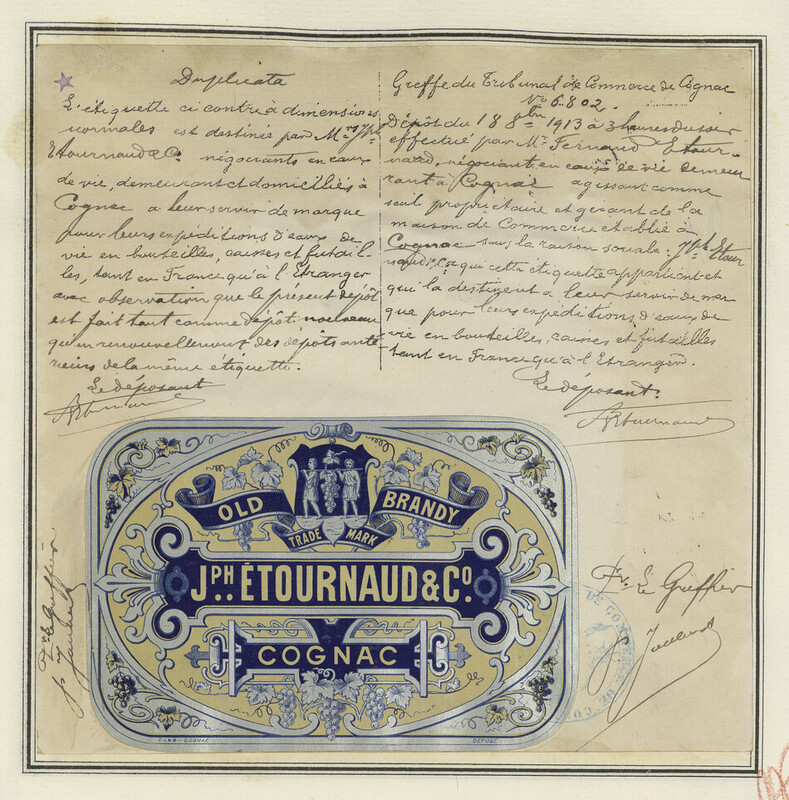 Duplicata
L'étiquette ci contre à dimensions
normales est destinée par Mrs Jph
Etournaud & Co négociants en eaux
de vie, demeurant et domiciliés à
Cognac a leur servir de marque
pour leurs expéditions d'eaux de
vie en bouteilles, caisses et futail-
les, tant en France qu'à l'Etranger
avec observation que le présent dépôt
est fait tant comme dépôt nouveau
qu'en renouvellement des dépôts anté-
rieurs de la même étiquette.
Le déposant
Greffe du Tribunal de Commerce de Cognac
No 6.802.
Dépôt du 18 8bre 1913 à 3 heures du soir
effectué par Mr Fernand Etour-
naud, négociant en eaux de vie demeu
rant à Cognac agissant comme
seul propriétaire et gérant de la
maison de Commerce établie à
Cognac sous la raison sociale: Jph Etour
naud & Co qui cette étiquette appartient et
qui la destinent a leur servir de mar
que pour leurs expéditions d'eaux de
vie en bouteilles, caisses et futailles
tant en France qu'à l'Etranger.
Le déposant.
OLD BRANDY
TRADE MARK
JPH. ÉTOURNAUD & CO.
COGNAC
COGNAC
DÉPOSÉ
Pr. Le Greffier
Pr Le Greffier
DE COMMERCE DE CO